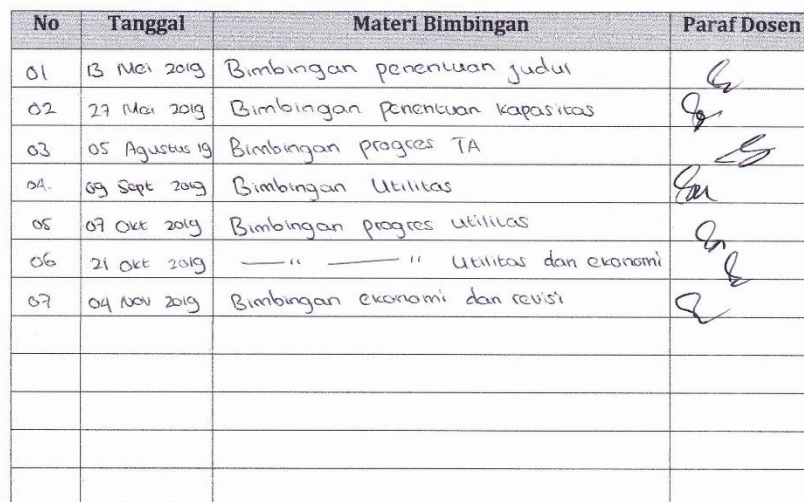 No Tanggal Materi Bimbingan Paraf Dosen
01 13 Mei 2019 Bimbingan penentuan judul
02 27 Mei 2019 Bimbingan penentuan kapasitas
03 05 Agustus 19 Bimbingan progres TA
04. 09 Sept 2019 Bimbingan Utilitas
05 07 Okt 2019 Bimbingan progres utilitas
06 21 Okt 2019 —— " —— " Utilitas dan ekonomi
07 04 Nov 2019 Bimbingan ekonomi dan revisi